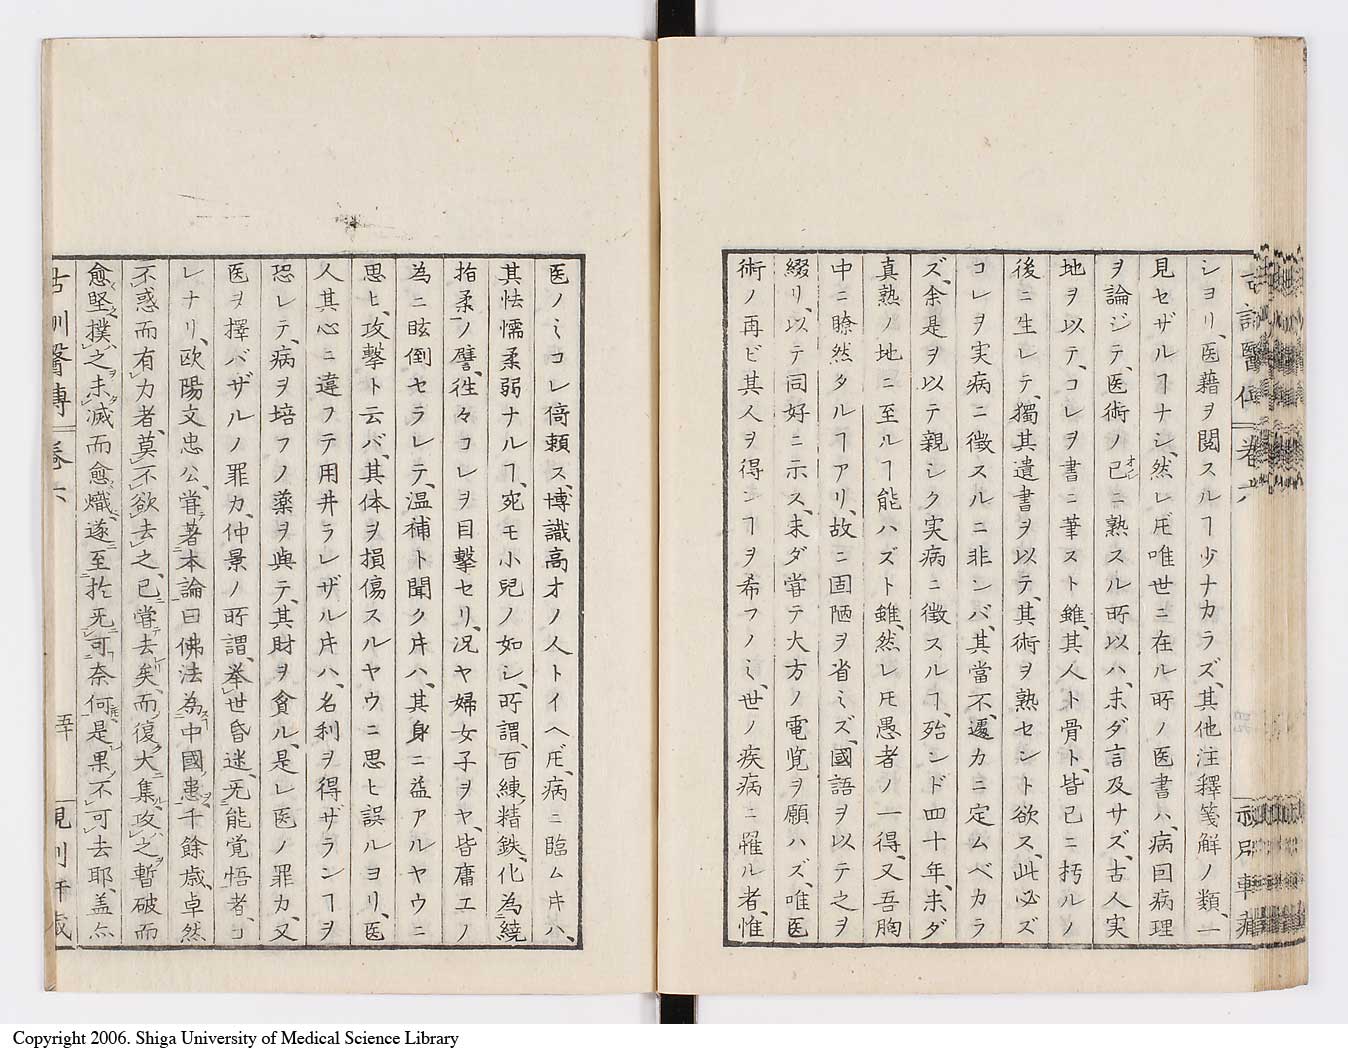 ショリ、医藉ヲ閲スルヿ少ナカラズ、其他注釋箋解ノ類、一
見セザルヿナシ、然レ𪜈唯世ニ在ル所ノ医書ハ、病因病理
ヲ論ジテ、医術ノ已ニ熟スル所以ハ、未ダ言及サズ、古人実
地ヲ以テ、コレヲ書ニ筆スト雖、其人ト骨ト、皆已ニ朽ルノ
後ニ生レテ、獨其遺書ヲ以テ、其術ヲ熟セント欲ス、此必ズ
コレヲ実病ニ徴スルニ非ンバ、其當不、遽カニ定ムベカラ
ズ、余是ヲ以テ親シク実病ニ徴スルヿ、殆ンド四十年、未ダ
真熟ノ地ニ至ルヿ能ハズト雖、然レ𪜈愚者ノ一得、又吾胸
中ニ瞭然タルヿアリ、故ニ固陋ヲ省ミズ、國語ヲ以テ之ヲ
綴リ、以テ同好ニ示ス、未ダ甞テ大方ノ電覧ヲ願ハズ、唯医
術ノ再ビ其人ヲ得ンヿヲ希フノミ、世ノ疾病ニ罹ル者、惟
医ノミコレ倚頼ス、博識高才ノ人トイヘ𪜈、病ニ臨ムキハ、
其怯懦柔弱ナルヿ、宛モ小兒ノ如シ、所謂、百練精鉄、化為繞
指柔ノ譬、徃々コレヲ目撃セリ、况ヤ婦女子ヲヤ、皆庸工ノ
為ニ眩倒セラレテ、温補ト聞ク片ハ、其身ニ益アルヤウニ
思ヒ、攻撃ト云バ、其体ヲ損傷スルヤウニ思ヒ誤ルヨリ、医
人其心ニ違フテ用井ラレザル片ハ、名利ヲ得ザランヿヲ
恐レテ、病ヲ培フノ薬ヲ與テ、其財ヲ貪ル、是レ医ノ罪カ、又
医ヲ擇バザルノ罪カ、仲景ノ所謂、挙世昏迷、旡能覚悟者、コ
レナリ、欧陽文忠公、甞著本論曰佛法為中國患千餘歳、卓然
不惑而有力者、莫不欲去之、已甞去矣、而復大集、攻之暫破而
愈堅撲之未滅而愈熾、遂至於旡可奈何是果不可去耶、盖亦
古訓醫傳 巻六 五十
Copyright 2006. Shiga University of Medical Science Library